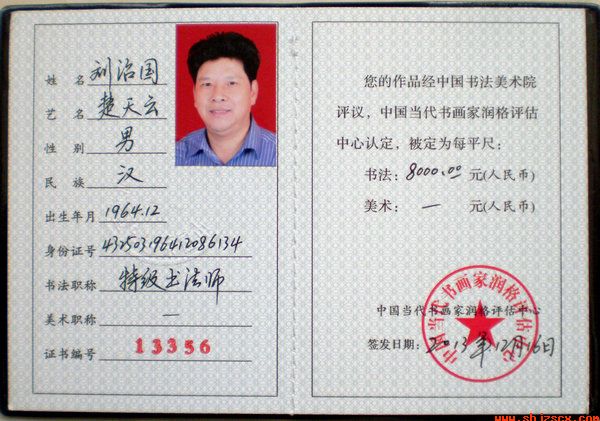 姓 名 刘治国
艺 名 楚天云
性 别 男
民 族 汉
出生年月 1964.12
身份证号 432503196412086134
书法职称 特级书法师
美术职称 一
证书编号 13356
您的作品经中国书法美术院
评议，中国当代书画家润格评估
中心认定，被定为每平尺：
书法：8000.00 元(人民币)
美术：一 元(人民币)
中国当代书画家润格评估中心
中国当代书画家润格评估中心
签发日期：2013年12月16日
www.shjzscx.com